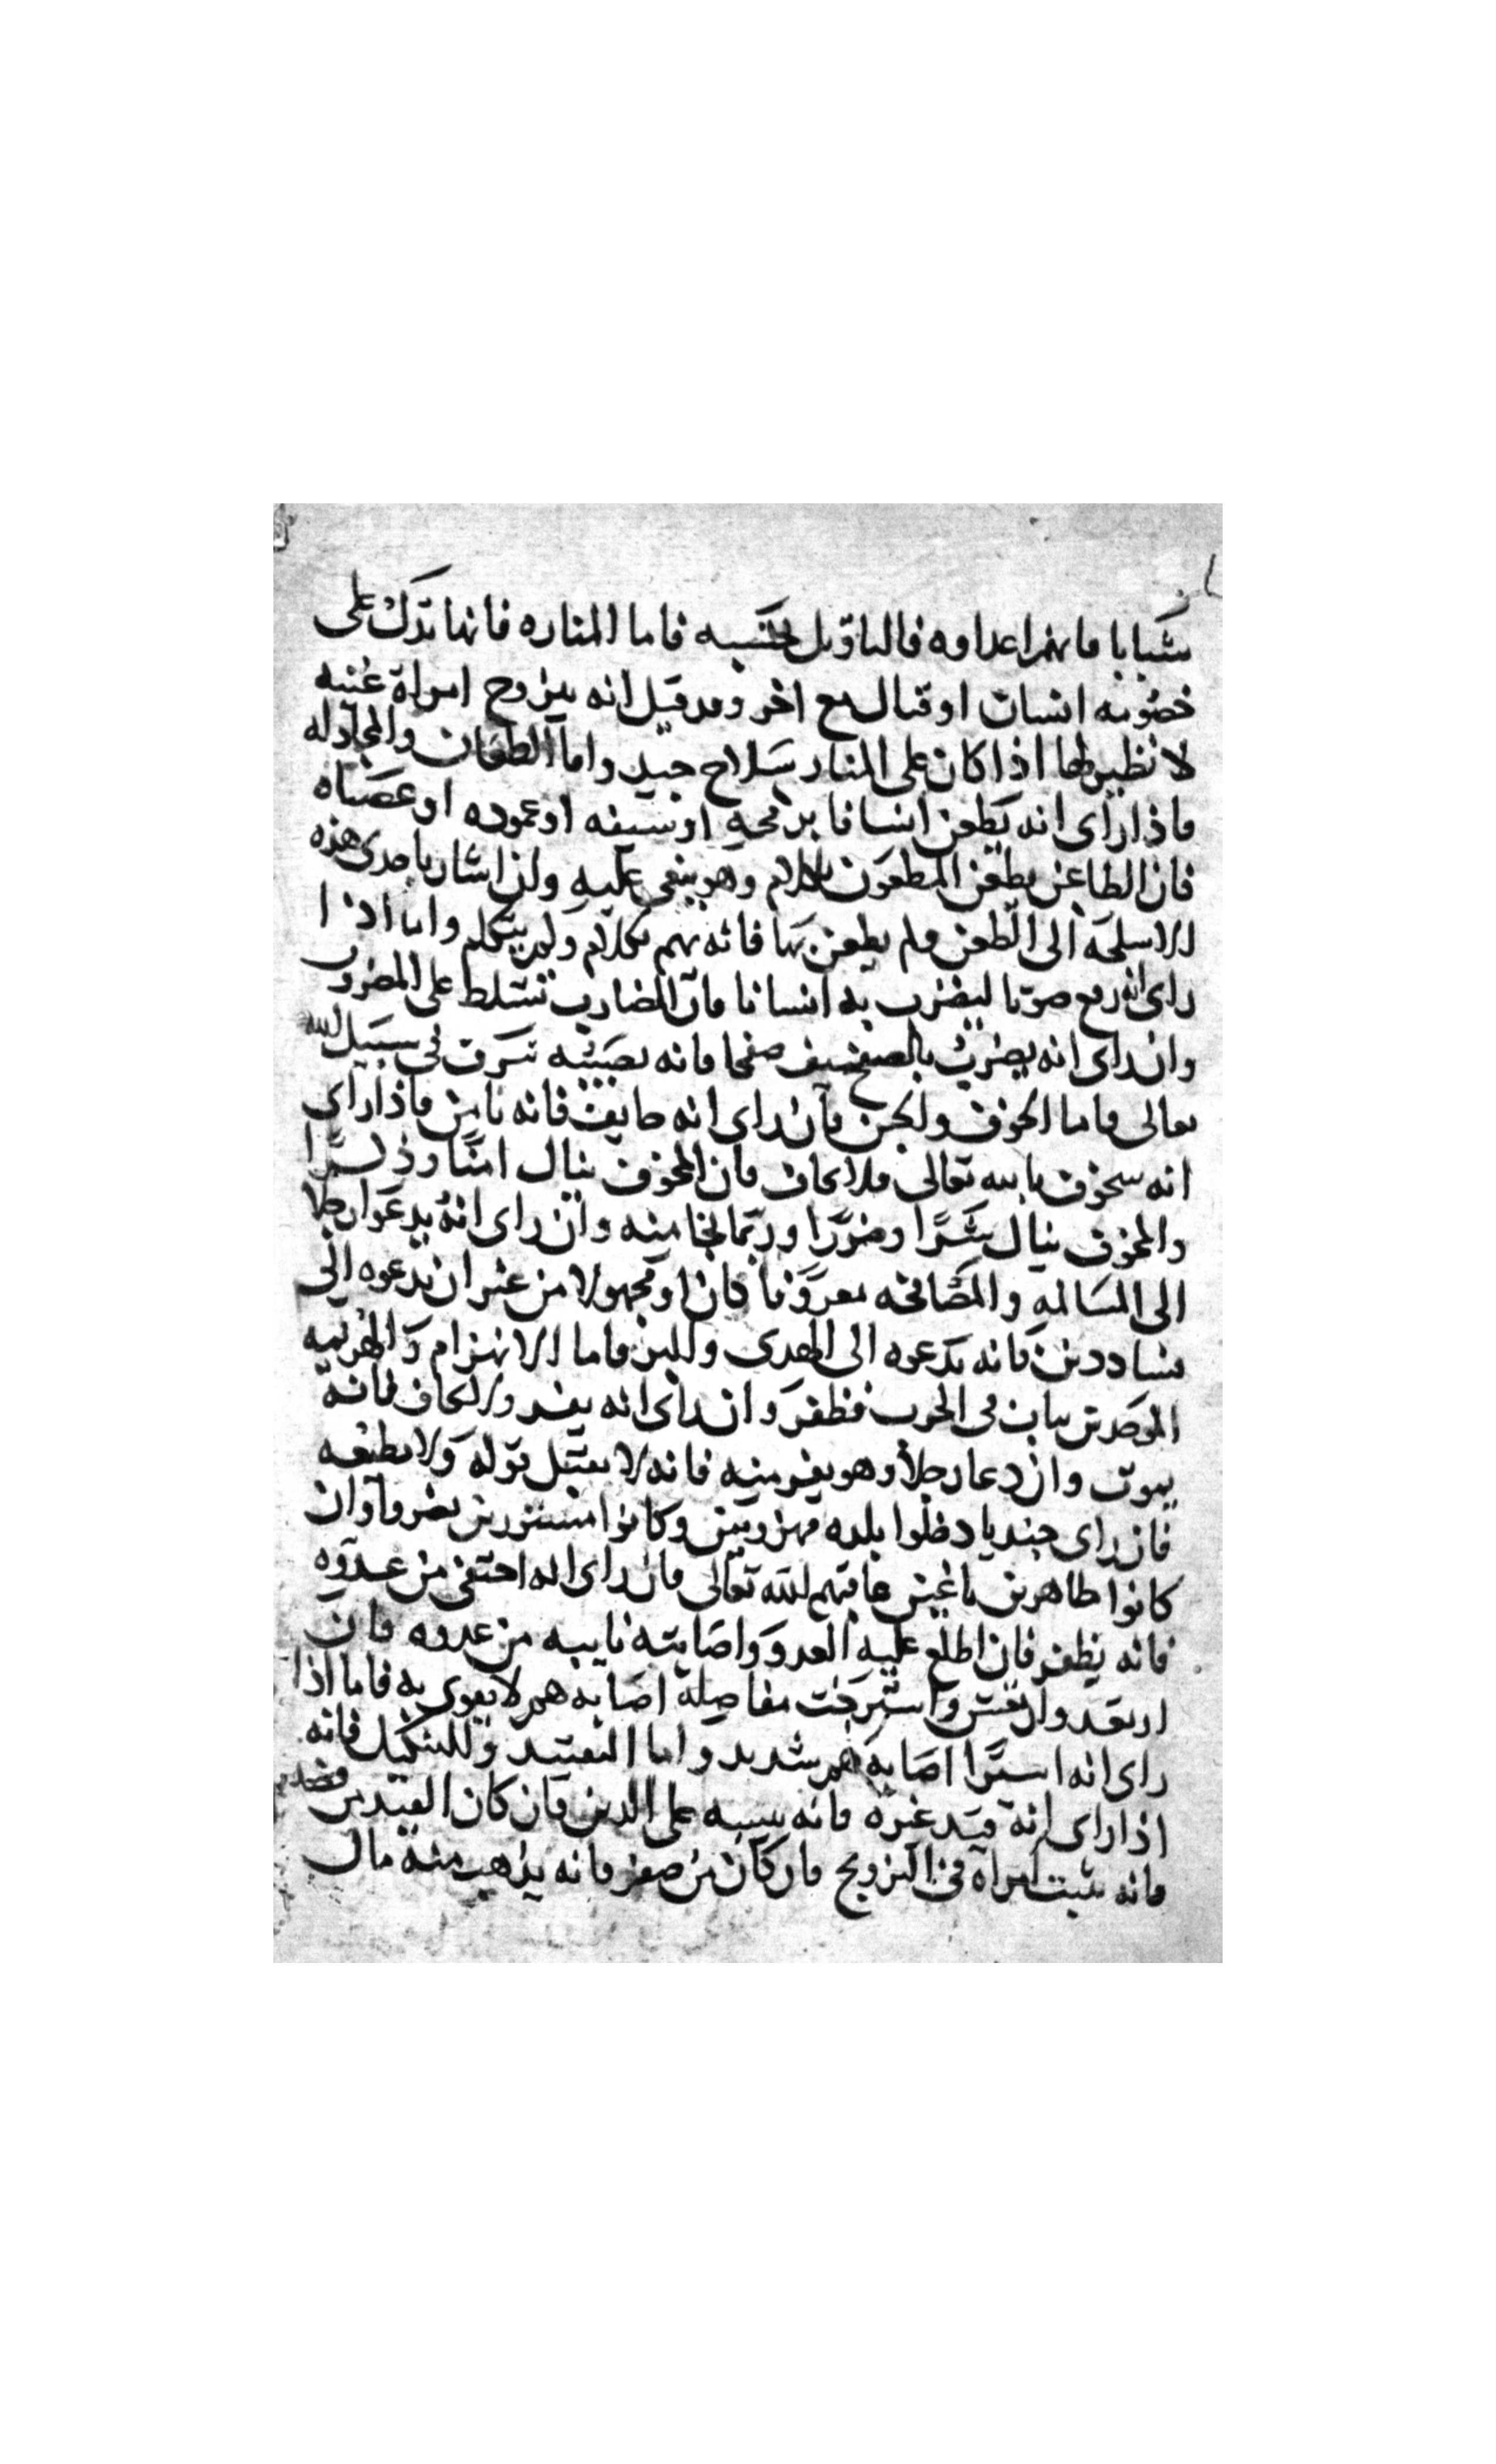 شبابا فانهم اعداوه فالتاويل بحسبه فاما المناره فانها تدل على
خصومه انسان او قتال مع اخر وقد قيل انه يتزوج امراة غنيه
لا نظير لها اذا كان على المنار سلاح جيد واما الطعان والمجادله
فاذا راى انه يطعن انسانا برمحه او سيفه او عموده او عصاه
فان الطاعن يطعن المطعون بكلام وهو يبغى عليه وان اشار باحدى هذه
الاسلحه الى الطعن ولم يطعن بها فانه يهم بكلام ولم يتكلم واما اذا
راى انه رفع صوتا ليضرب به انسانا فان الضارب تسلط على المضروب
وان راى انه يضرب بالصفح سيف صفحا فانه يصيبه شرف في سبيل الله
تعالى فاما الخوف والجبن فان راى انه خايف فانه يامن فاذا راى
انه يخوف بالله تعالى فلا يخاف فان المخوف ينال امنا وذلك شرا
والمخوف ينال شرا وضررا وربما نجا منه وان راى انه يدعوا رجلا
الى المسالمه والمصافحه معروفا كان او مجهولا من غير ان يدعوه الى
فساد دين فانه يدعوه الى الهدى والدين فاما الانهزام والهزيمه
الموحدين بيان في الحرب فظفر وان راى انه يفر ولا يخاف فانه
يموت وان دعا رجلا وهو يفر منه فانه لا يقبل قوله ولا يطيعه
فان راى جنديا دخلوا بلده مهزومين وكانوا مستورين نصروا وان
كانوا ظاهرين باغين عاقبهم الله تعالى فان راى انه اختفى من عدوه
فانه يظفر فان اطلع عليه العدو واصابته نايبه من عدوه فان
ارتعد وارتعش واسترخت مفاصله اصابه هم لا يقوى به فاما اذا
راى انه اسيرا اصابه هم شديد واما التقييد والتنكيل فانه
اذا راى انه قيد غيره فانه سببه على الدين فان كان القيد من فضه
فانه يثبت امراه في التزويج فان كان من صفر فانه يذهب منه مال